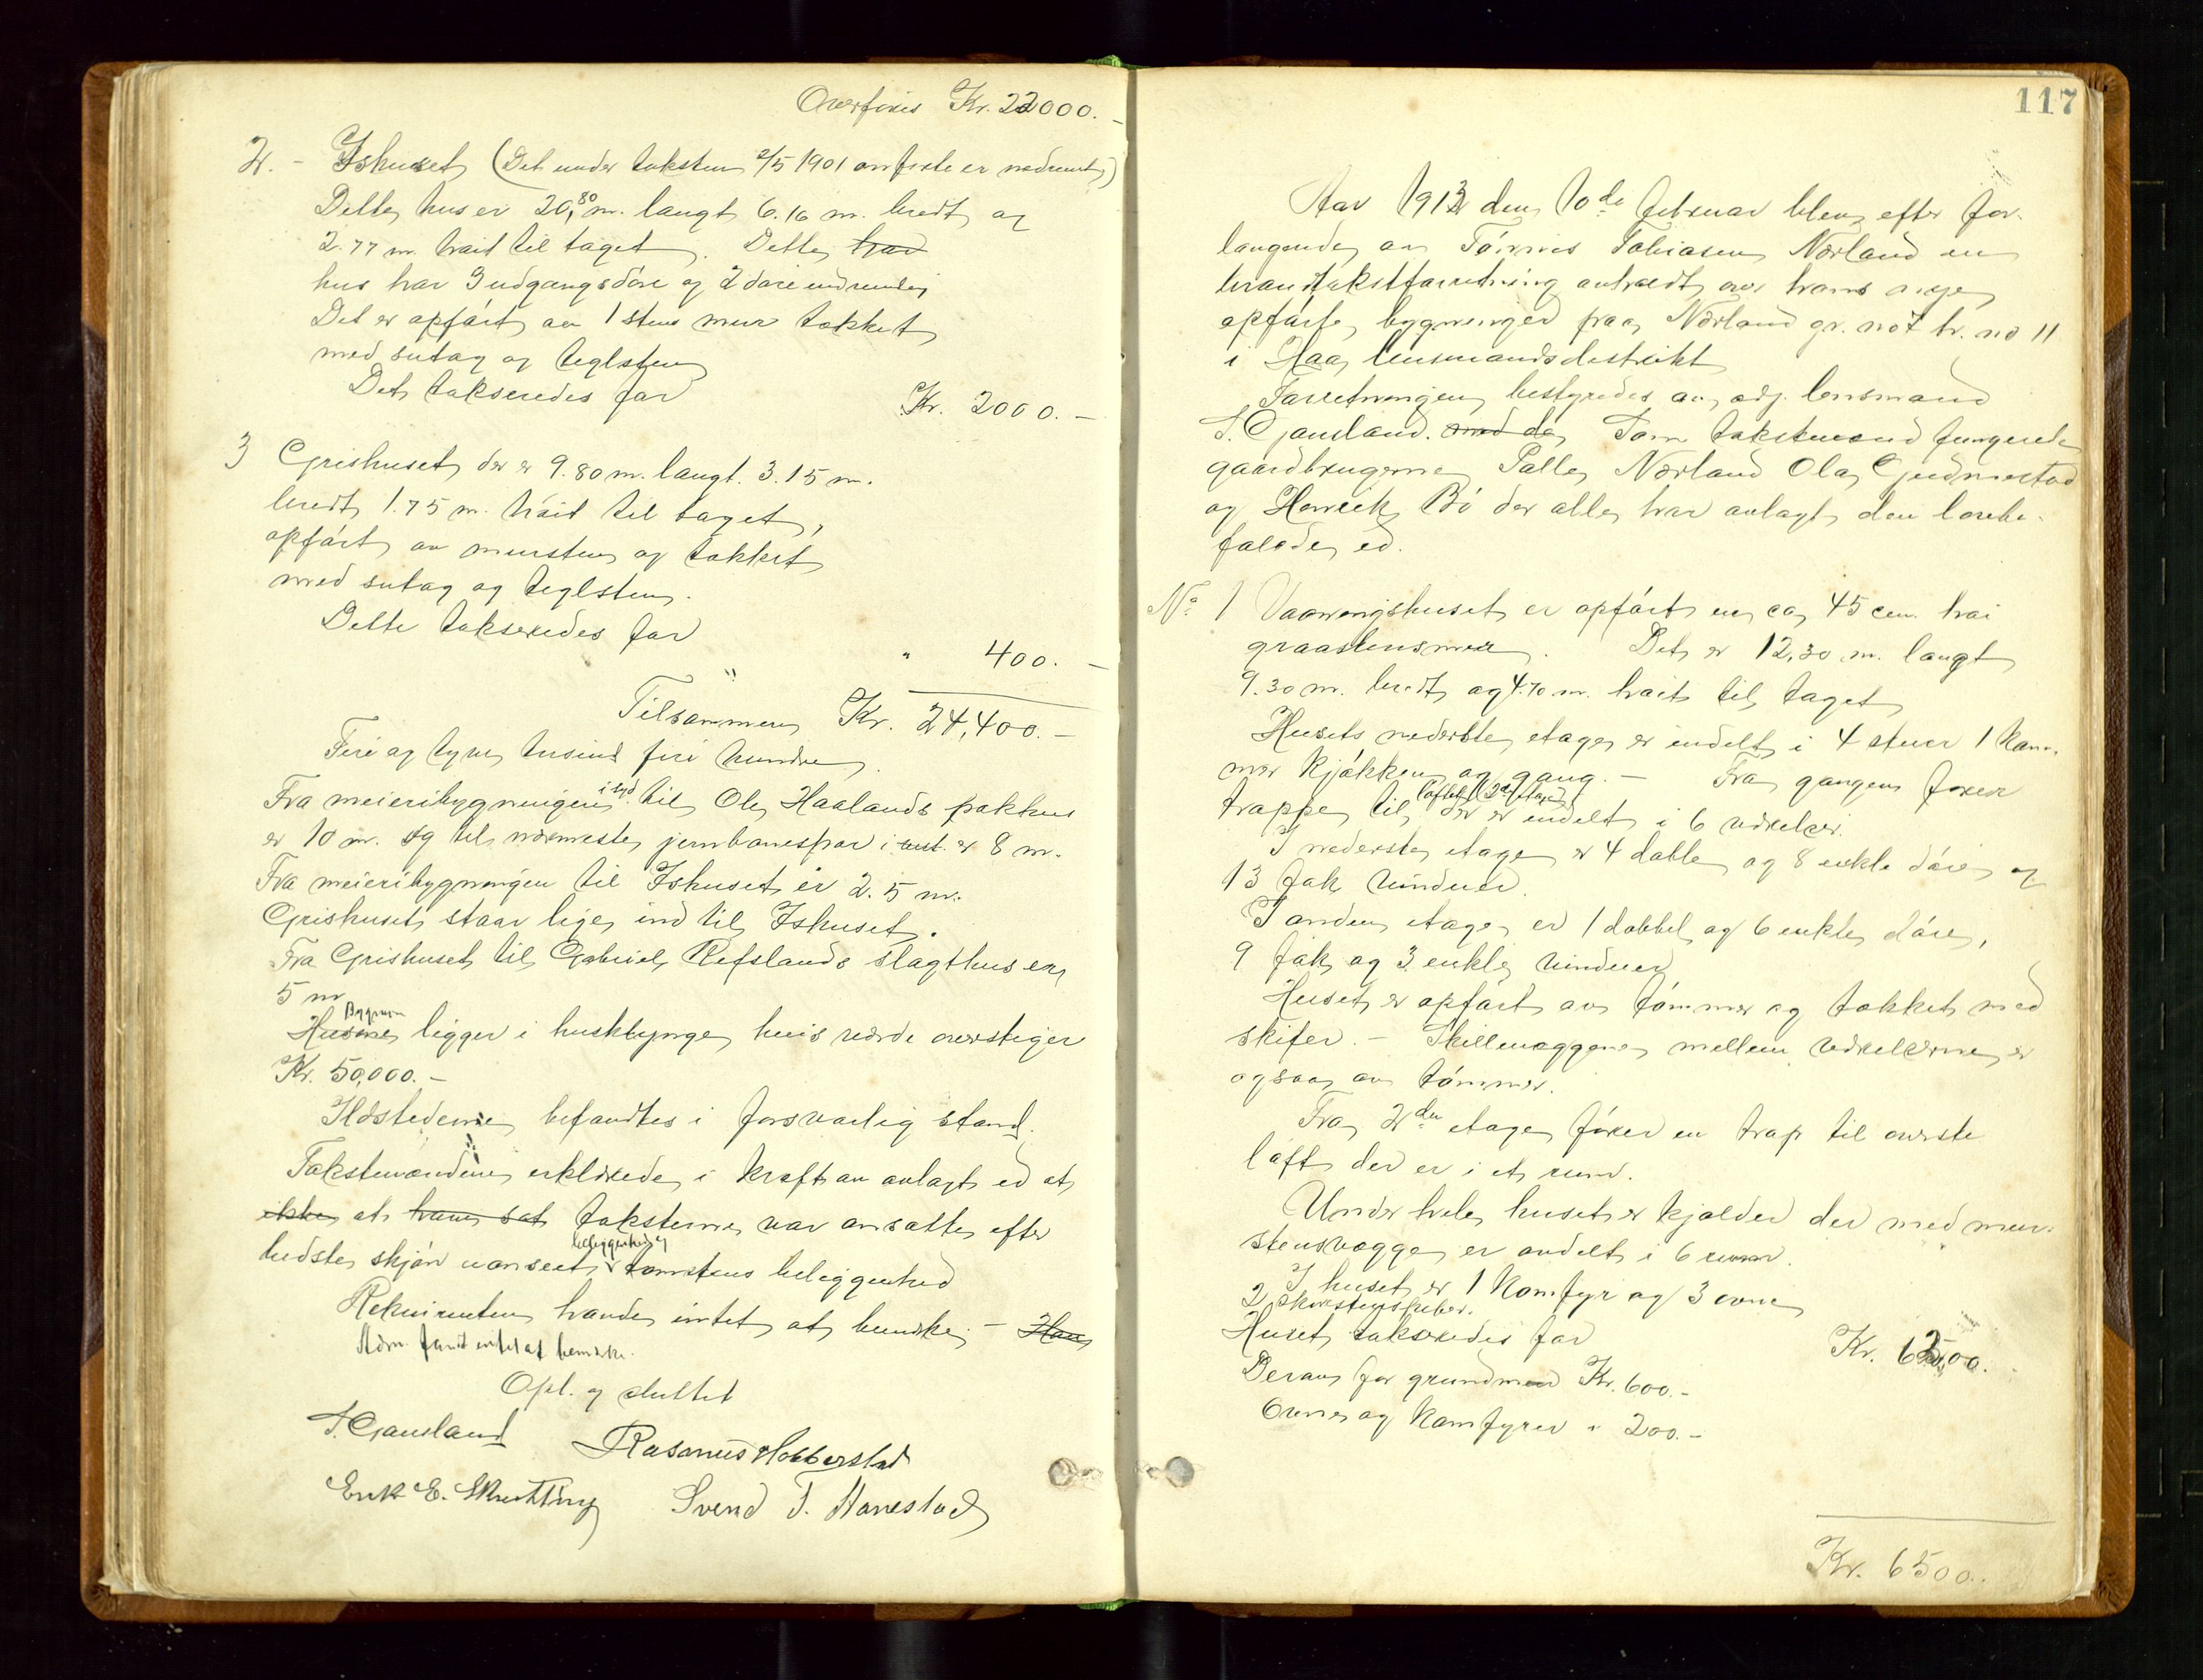 Overføres Kr. 22000.-
2. - Ishuset (Det under taksten 2/5 1901 anførte er nedrevet)
Dette hus er 20,80 m. langt 6.16 m. bredt og
2.77 m. høit til taget. Dette har
hus har 3 udgangsdøre og 2 døre indvendig
Det er opført av 1 stens mur tækket
med sutag og teglsten
Det takseredes for Kr. 2000.-
3 Grishuset der er 9.80 m. langt. 3.15 m.
bredt 1.75 m. høit til taget,
opført av mursten og tækket
med sutag og teglsten.
Dette takseredes for " 400.-
Tilsammen Kr. 24,400.-
Firi og tyve tusind firi hundre
Fra meieribygningen i syd til Ole Haalands pakhus
er 10 m. og til nærmeste jernbanespor i vest er 8 m.
Fra meieribygningen til Ishuset er 2.5 m.
Grishuset staar lige ind til Ishuset.
Fra Grishuset til Gabriel Refslands slagthus er
5 m
Husene ligger i husklynge hvis værdi overstiger
Kr. 50,000.-
Ildstederne befandtes i forsvarlig stand.
Takstmændene erklærede i kraft av avlagt ed at
ikke at have sat taksterne var ansatte efter
bedste skjøn uanseet beliggenhed og tomtens beliggenhed
Rekvirenten havde intet at bemærke - Han
Adm. fandt intet at bemærke.
Opl. og sluttet
T. Gausland Rasmus Hobberstad
Erik E. Skretting Svend T. Hanestad
117
Aar 1913 den 10de februar blev efter for-
langende av Tønnes Tobiasen Nærland en
brandtakstforretning avholdt over hans nye
opførte bygninger paa Nærland gr. no 7 br. no 11
i Haa lensmandsdistrikt
Forretningen bestyredes av adj. lensmand
T. Gausland. med de Som takstmænd fungerede
gaardbrugerne Palle Nærland Ola Gudmestad
og Henrik Bø der alle har avlagt den lovbe-
falede ed.
No 1 Vaaningshuset er opført en ca 45 cm. høi
graastensmur. Det er 12,30 m. langt
9.30 m. bredt og 4.70 m. høit til taget
Husets nederste etage er indelt i 4 stuer 1 kam-
mer kjøkken og gang. - Fra gangen fører
trappe til loftet (2d etage) der er indelt i 6 værelser.
I nederste etage er 4 doble og 8 enkle døre og
13 fak vinduer.
I anden etage er 1 dobbel og 6 enkle døre,
9 fak og 3 enkle vinduer
Huset er opført av tømmer og tækket med
skifer. - Skillevæggene mellem værelserne er
ogsaa av tømmer.
Fra 2den etage fører en trap til øverste
loft der er i et rum.
Under hele huset er kjælder der med mur-
stensvægge er avdelt i 6 rum.
I huset er 1 komfyr og 3 ovne
2 skorstenspiber.
Huset takseredes for Kr. 6500.
Derav for grundmur Kr. 600.-
Ovne og komfyrer " 200.-
Kr. 6500.